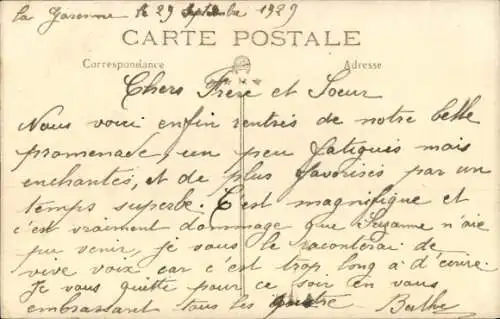 la Garenne le 29 Septembre 1929
CARTE POSTALE
Correspondance Adresse
Chers Frere et Soeur
Nous voici enfin rentrés de notre belle
promenade, un peu fatigués mais
enchantés, et de plus favorisés par un
temps superbe. C'est magnifique et
c'est vraiment dommage que Suzanne n'aie
pu venir, je vous le raconterai de
vive voix car c'est trop long a d'ecrire.
Je vous quitte pour ce soir en vous
embrassant tous les quatre Berthe